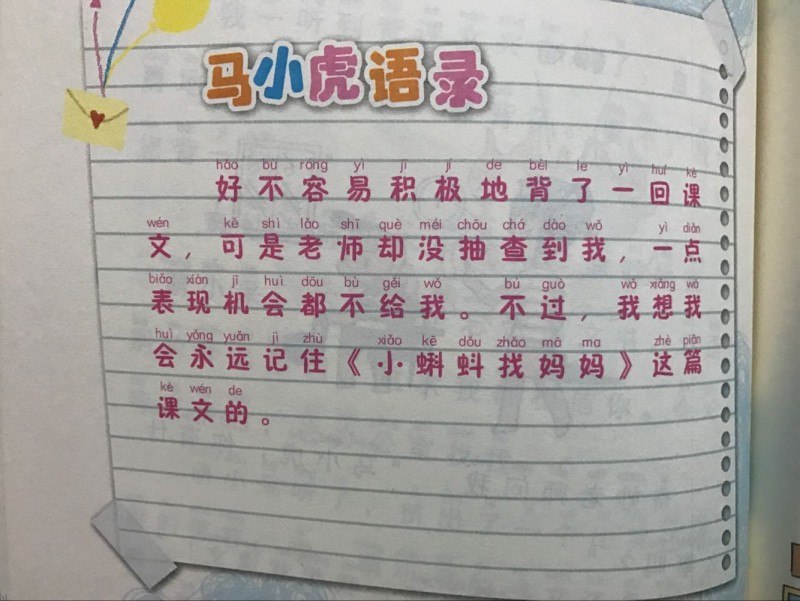 马小虎语录
hǎo bù róng yì jī jí de bèi le yì huí kè
好不容易积极地背了一回课
wén kě shì lǎo shī què méi chōu chá dào wǒ yì diǎn
文，可是老师却没抽查到我，一点
biǎo xiàn jī huì dōu bù gěi wǒ bú guò wǒ xiǎng wǒ
表现机会都不给我。不过，我想我
huì yǒng yuǎn jì zhù xiǎo kē dǒu zhǎo mā ma zhè piān
会永远记住《小蝌蚪找妈妈》这篇
kè wén de
课文的。